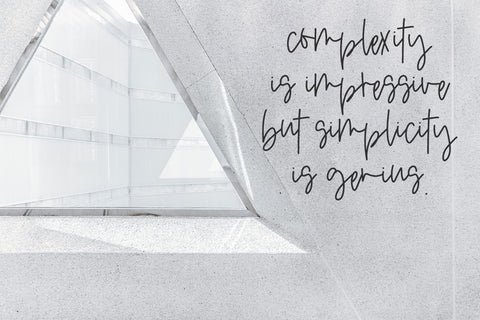 complexity
is impressive
but simplicity
is genius.